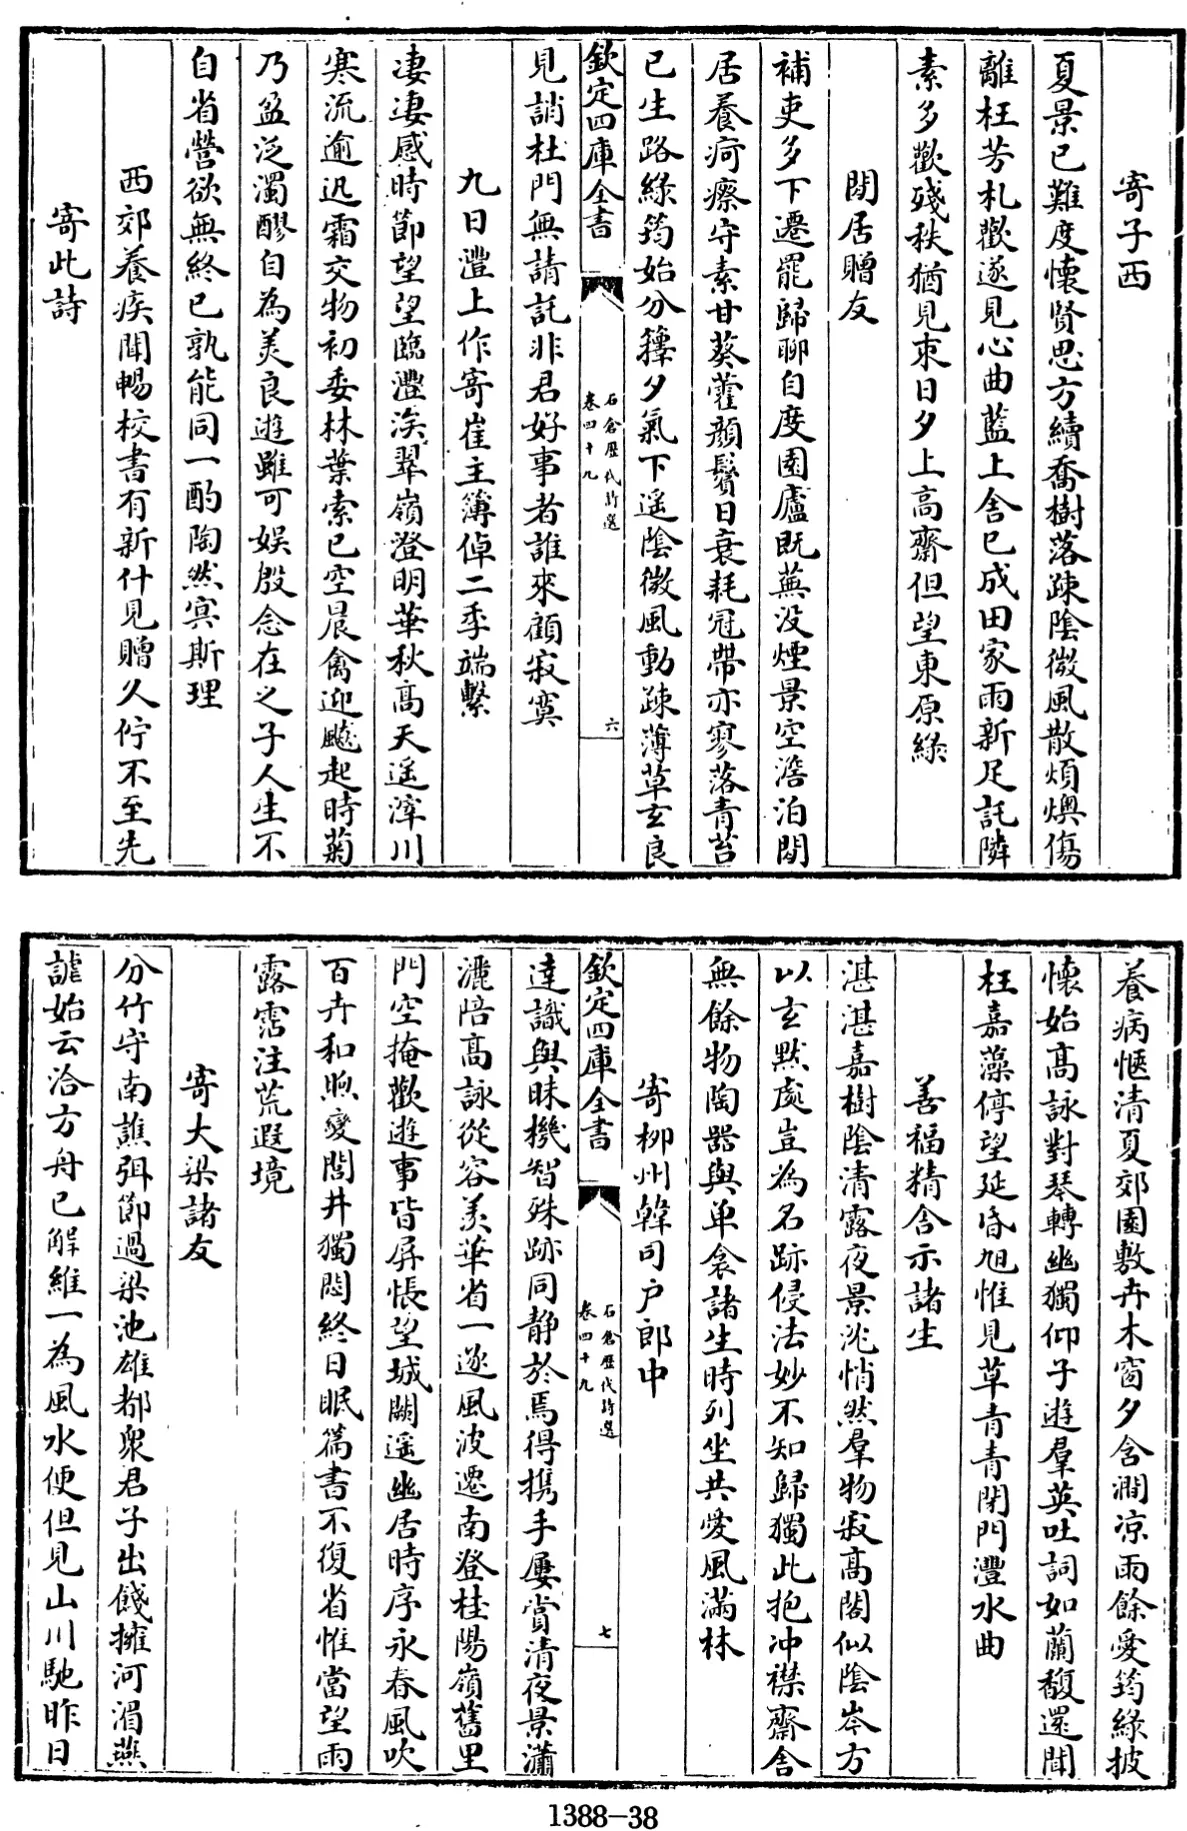 寄子西
夏景已難度懷賢思方續喬樹落疎陰微風散煩燠傷
離枉芳札歡遂見心曲藍上舍已成田家雨新足託隣
素多歡殘秩猶見束日夕上高齋但望東原綠
閒居贈友
補吏多下遷罷歸聊自度園廬既蕪没煙景空澹泊閒
居養疴瘵守素甘葵藿顏鬢日衰耗冠帶亦寥落青苔
已生路綠筠始分籜夕氣下遥陰微風動疎薄草玄良
欽定四庫全書
石倉歷代詩選
卷四十九
六
見誚杜門無請託非君好事者誰來顧寂寞
九日灃上作寄崔主簿倬二季端繫
凄凄感時節望望臨灃涘翠嶺澄明華秋高天遥滓川
寒流逾迅霜交物初委林葉索已空晨禽迎飇起時菊
乃盈泛濁醪自為美良遊雖可娱殷念在之子人生不
自省營欲無終已孰能同一酌陶然冥斯理
西郊養疾聞暢校書有新什見贈久佇不至先
寄此詩
養病愜清夏郊園敷卉木窗夕含澗凉雨餘愛筠綠披
懷始高詠對琴轉幽獨仰子遊羣英吐詞如蘭馥還聞
枉嘉藻停望延昏旭惟見草青青閉門灃水曲
善福精舍示諸生
湛湛嘉樹陰清露夜景沈悄然羣物寂高閣似陰岑方
以玄默處豈為名跡侵法妙不知歸獨此抱冲襟齋舍
無餘物陶器與单衾諸生時列坐共愛風滿林
寄柳州韓司户郎中
達識與昧機智殊跡同静於焉得携手屢賞清夜景瀟
灑陪高詠從容羡華省一遂風波遷南登桂陽嶺舊里
門空掩歡遊事皆屏悵望城闕遥幽居時序永春風吹
百卉和煦變閭井獨悶終日眠篇書不復省惟當望雨
露霑注荒遐境
寄大梁諸友
分竹守南譙弭節過梁池雄都衆君子出餞擁河湄燕
謔始云洽方舟已解維一為風水便但見山川馳昨日
欽定四庫全書
石倉歷代詩選
卷四十九
七
1388-38